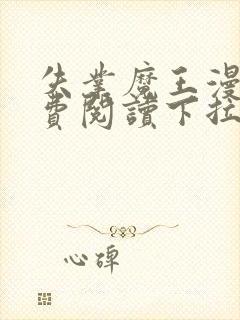 失業魔王漫
費閱讀下拉
心碑